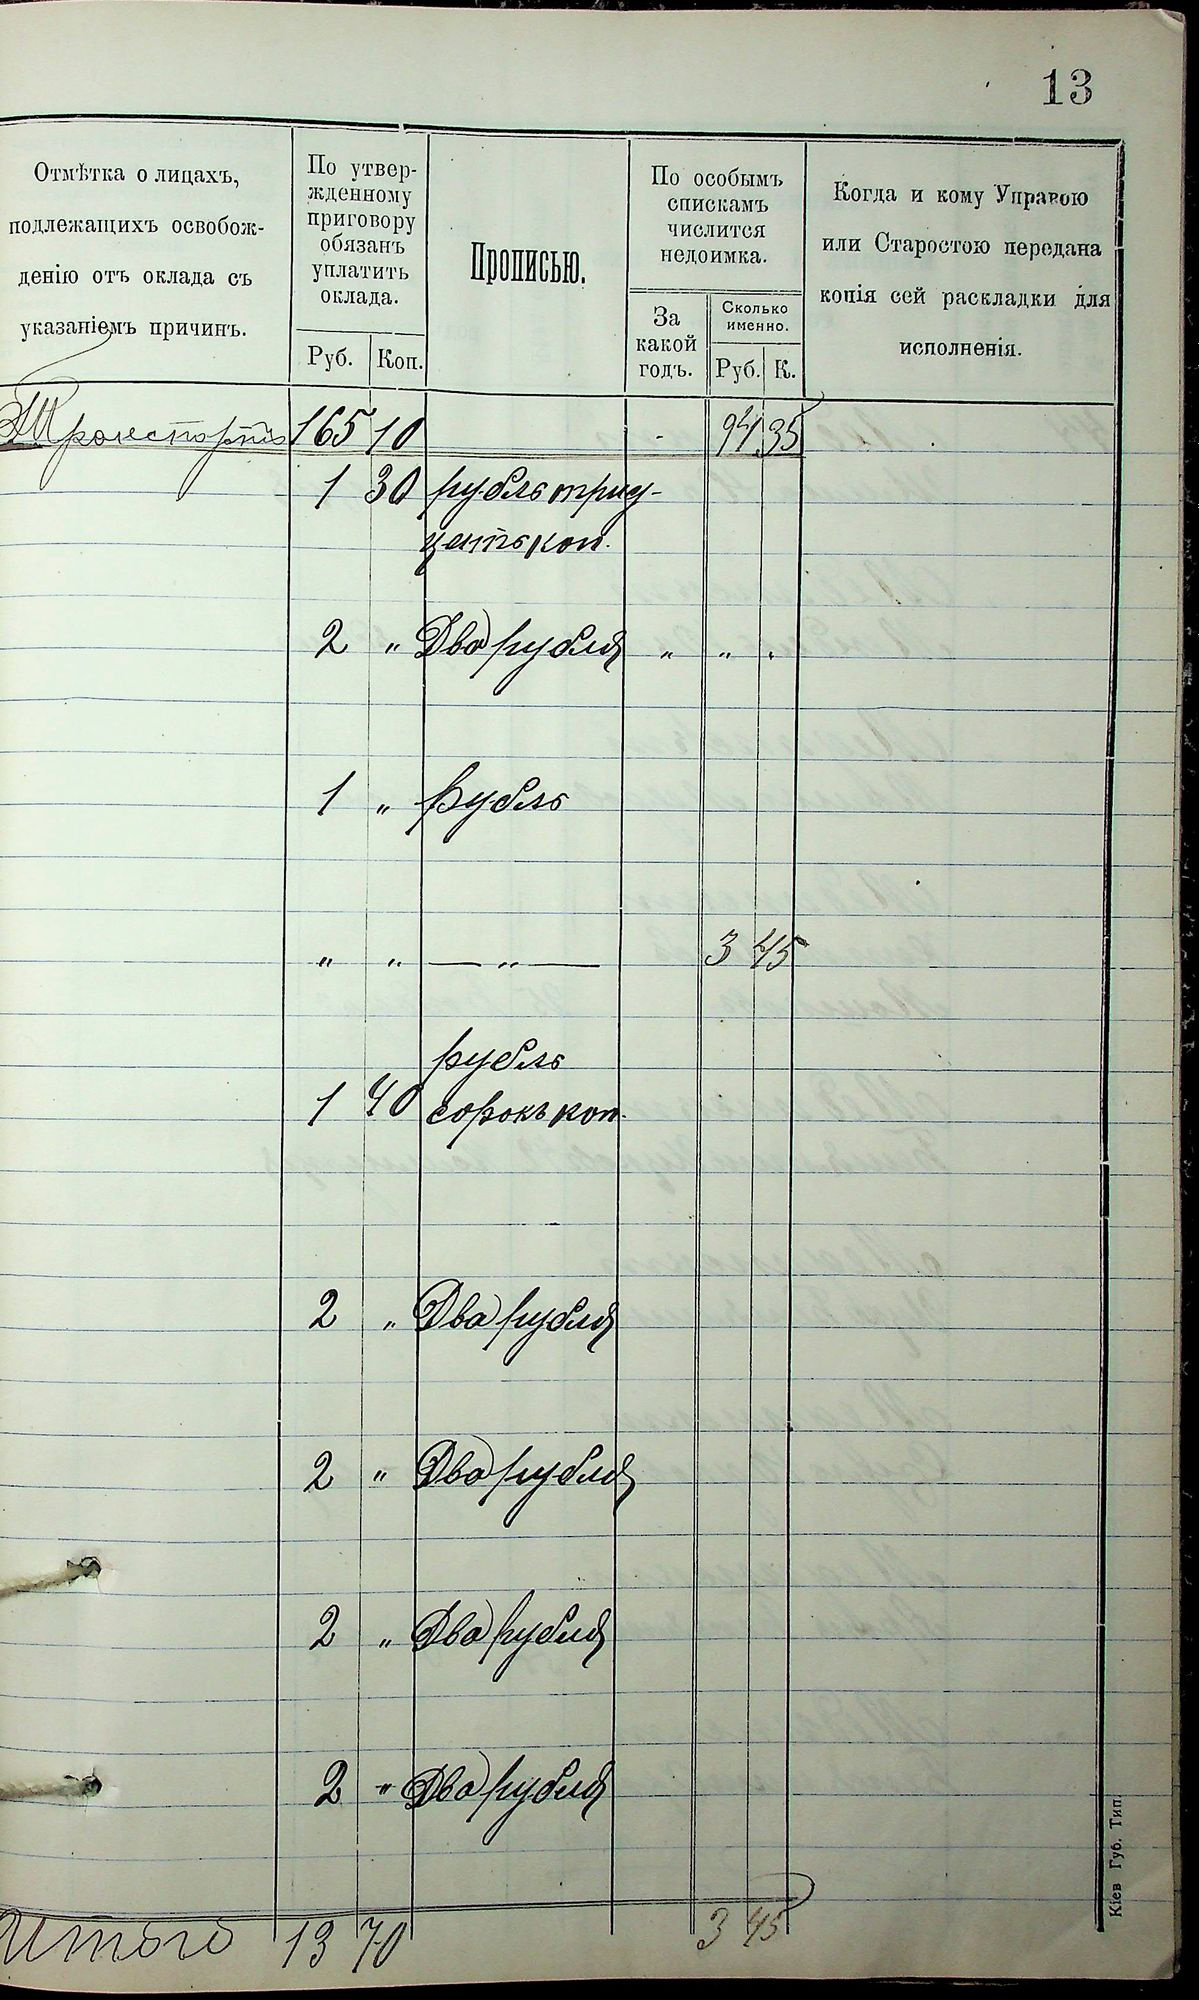 13
Отмѣтка о лицахъ,
подлежащихъ освобож-
денію отъ оклада съ
указаніемъ причинъ.
По утвер-
жденному
приговору
обязанъ
уплатить
оклада.
Руб. Коп.
Прописью.
По особымъ
спискамъ
числится
недоимка.
За
какой
годъ.
Сколько
именно.
Руб. К.
Когда и кому Управою
или Старостою передана
копія сей раскладки для
исполненія.
Транспортъ 165 10 - 94 35
1 30 рубль трид-
цать коп.
2 " Два рубля " " "
1 " Рубль
" " — " — 3 45
рубль
1 40 сорокъ коп.
2 " Два рубля
2 " Два рубля
2 " Два рубля
2 " Два рубля
Итого 13 70 3 45
Кіев Губ. Тип.